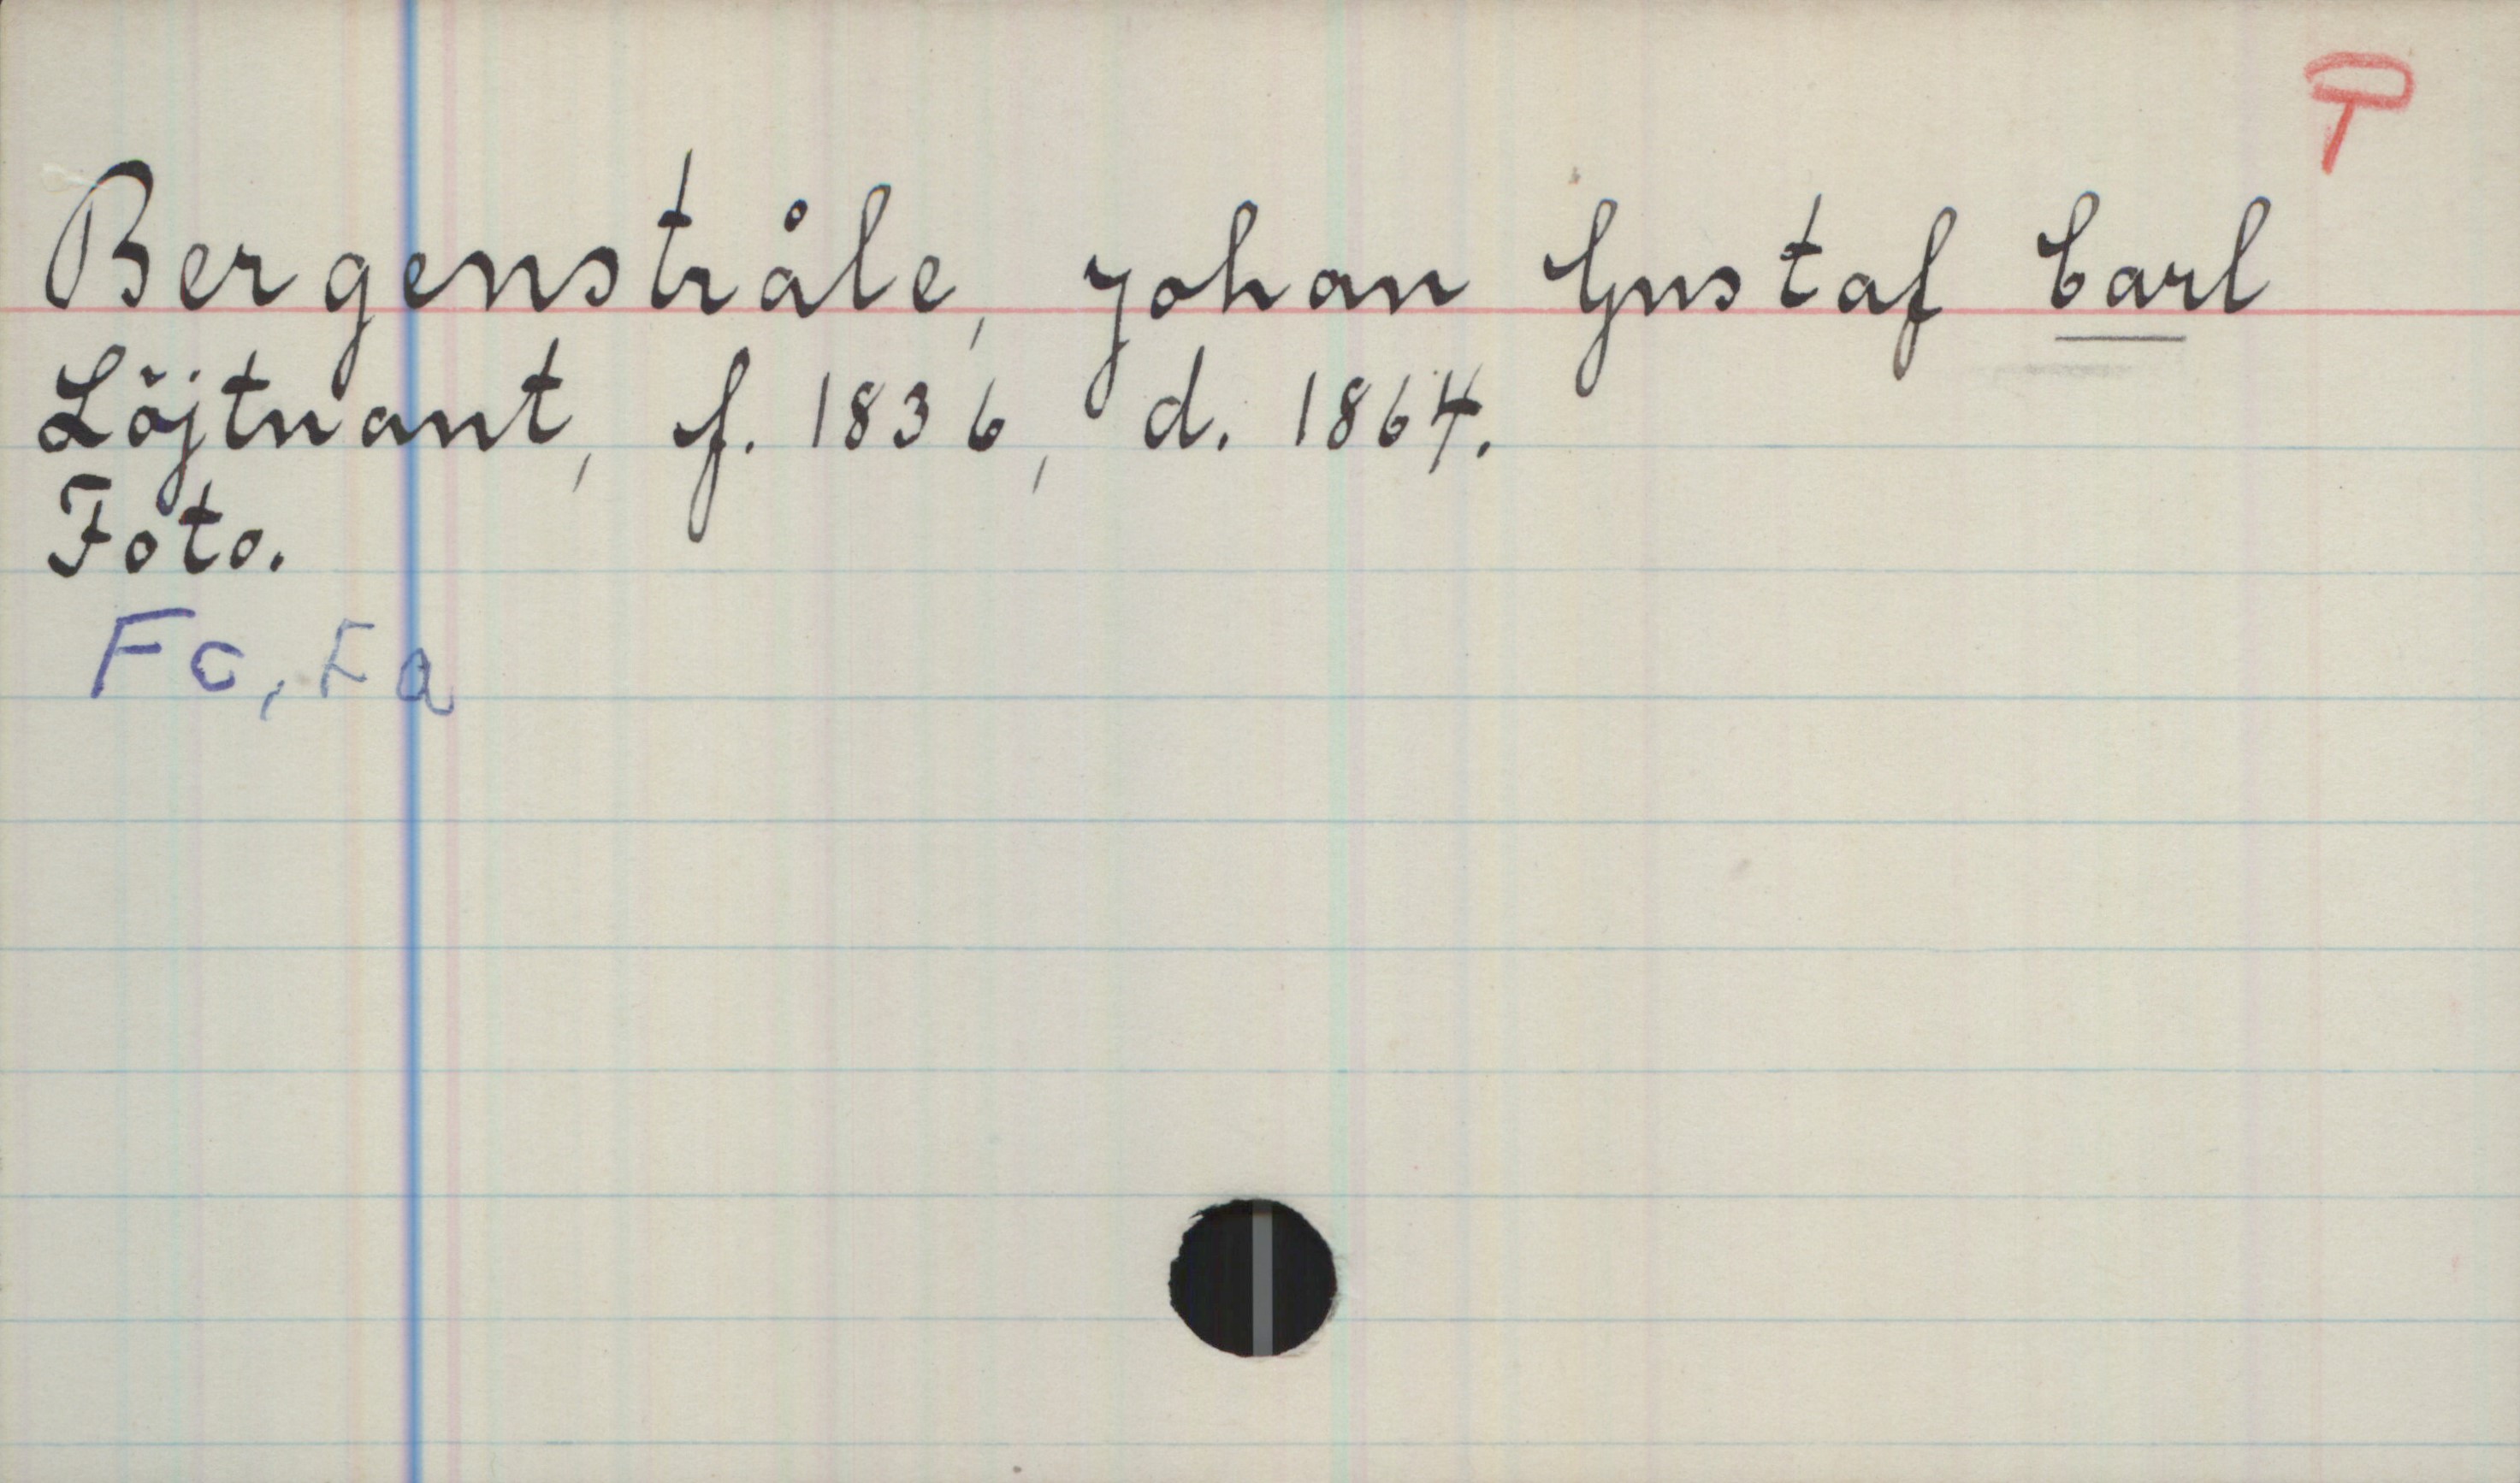 P
Bergenstråle, Johan Gustaf Carl
Löjtnant, f. 1836, d. 1864.
Foto.
Fc, Fa